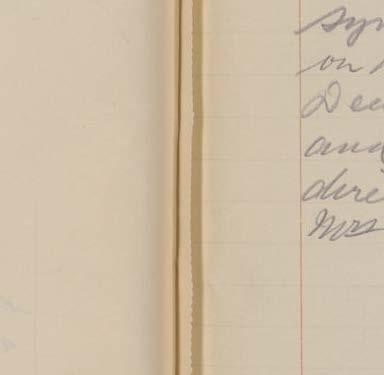 Syn
on
Dec
and
dire
Mrs